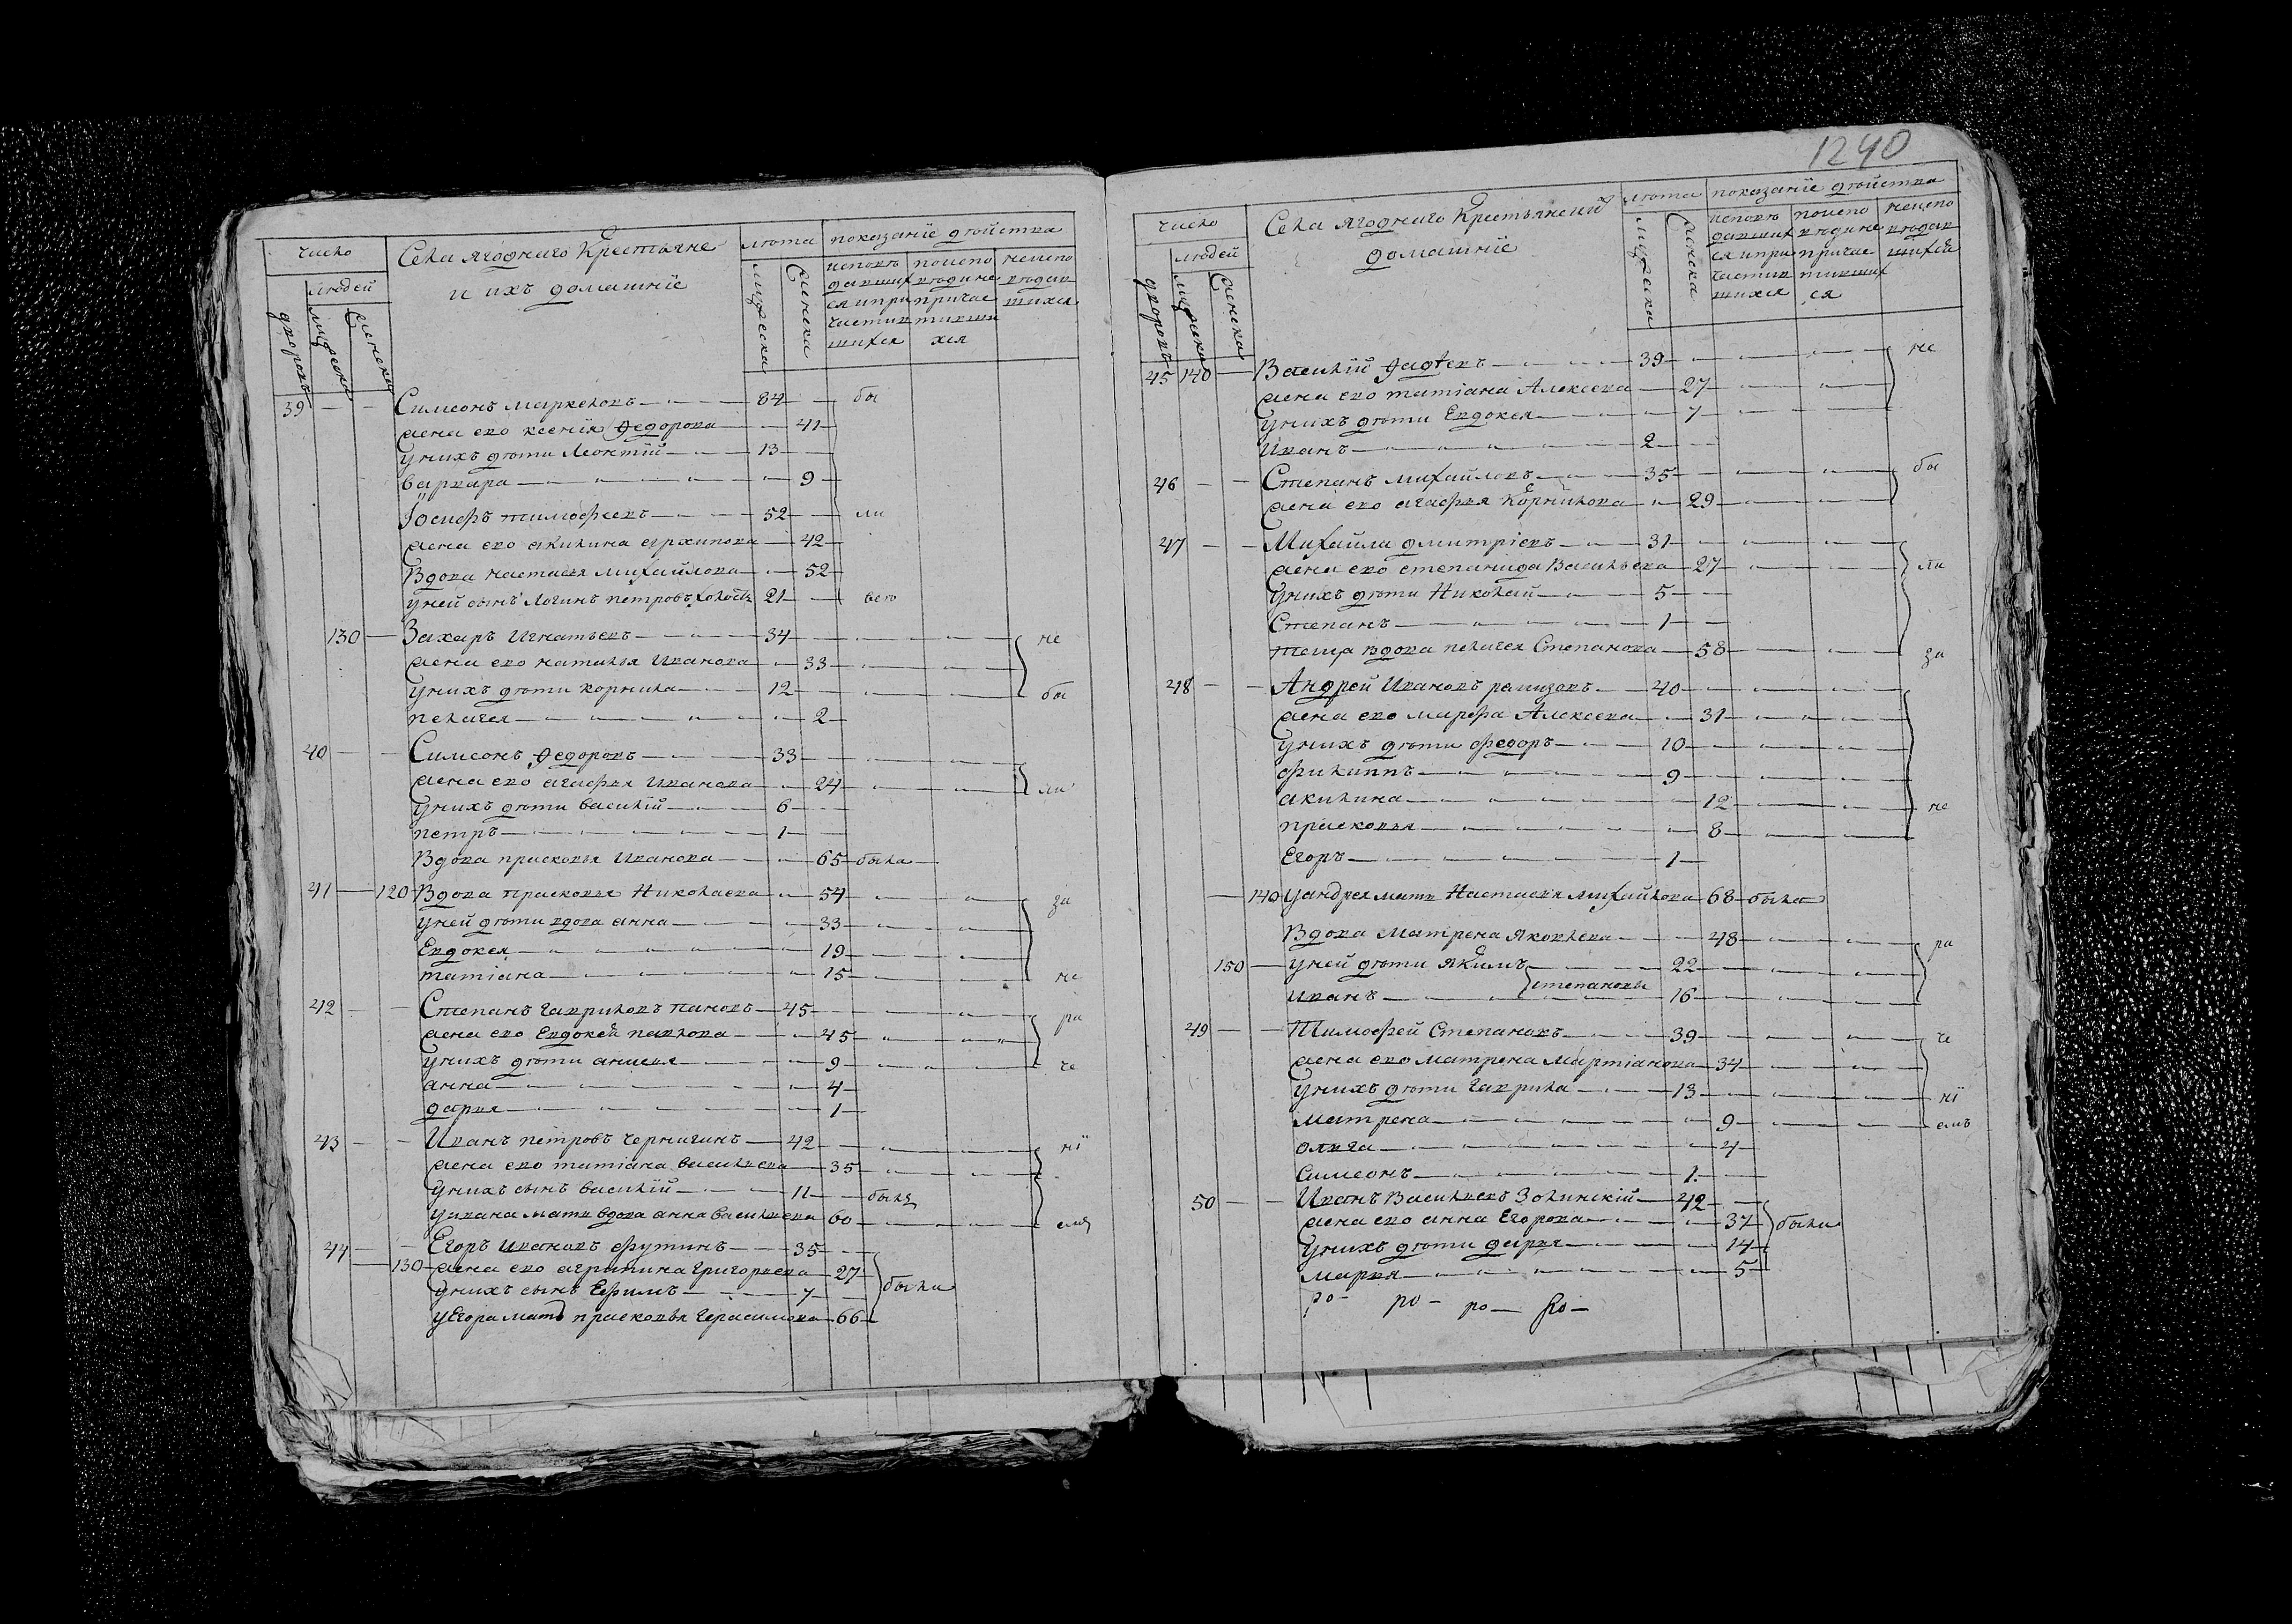 число
Села ягоднаго Крестьяне
и ихъ домашнїе
лѣта показанїе дѣйства
людей
дворовъ
мужеска
женска
мужеска
женска
исповѣ
давших
ся и при
частив
шихся
исповѣ
вѣди не
причас
тивши
хся
неиспо
вѣдав
шихся
39 Симеонъ маркеловъ 84 бы
жена ево ксенія Федорова 41
у нихъ дѣти Леонтїй 13
варвара 9
Іосифъ тимофеевъ 52 ли
жена ево акилина архипова 42
Вдова настасья михайлова 52
у ней сынъ Логинъ петровъ холостъ 21 всѣ
130 Захаръ Игнатьевъ 34 не
жена ево наталья Иванова 33
у нихъ дѣти корнила 12 бы
пелагея 2
40 Симеонъ Федоровъ 33
жена ево агафья Иванова 24 ли
у нихъ дѣти василїй 6
петръ 1
Вдова прасковья Иванова 65 была
41 120 Вдова прасковья Николаева 54 за
у ней дѣти вдова анна 33
Евдокея 19
татіана 15 не
42 Степанъ гавриловъ пановъ 45 ра
жена ево Евдокея павлова 45
у нихъ дѣти анисья 9 че
анна 4
дарья 1
43 Иванъ петровъ чернигинъ 42 нї
жена ево татіана васильева 35
у нихъ сынъ василїй 11 былъ
у ивана мать вдова анна васильева 60 емъ
44 Егоръ ивановъ футинъ 35
130 жена ево агрипина григорьева 27 были
у нихъ сынъ Ефимъ 7
у Егора мать прасковья герасимова 66
1240
число
Села ягоднаго Крестьянскїй
домашнїе
лѣта показанїе дѣйства
людей
дворовъ
мужеска
женска
мужеска
женска
исповѣ
давших
ся и при
частив
шихся
поиспо
вѣди не
причас
тивших
ся
неиспо
вѣдав
шихся
45 140 Василїй Фадѣевъ 39 не
жена ево татіана Алексеева 27
у нихъ дѣти Евдокея 7
иванъ 2
46 Степанъ михайловъ 35 бы
жена ево агафья Корнилова 29
47 Михайла дмитріевъ 31
жена ево степанида Васильева 27 ли
у нихъ дѣти Николай 5
Степанъ 1
теща вдова пелагея Степанова 58 за
48 Андрей Ивановъ ремизовъ 40
жена ево марфа Алексеева 31
у нихъ дѣти федоръ 10
филиппъ 9
акилина 12 не
прасковья 8
Егоръ 1
140 у андрея мать Настасья михайлова 68 была
Вдова Матрена Яковлева 48 ра
150 у ней дѣти Якимъ 22
степановы
иванъ 16
49 Тимофей Степановъ 39 че
жена ево матрена мартіанова 34
у нихъ дѣти гаврила 13 нї
матрена 9 емъ
ольга 4
симеонъ 1
50 Иванъ Васильевъ Золинскїй 42
жена ево анна Егорова 37 были
у нихъ дѣти дарья 14
марья 5
ро- ро- ро- ро-